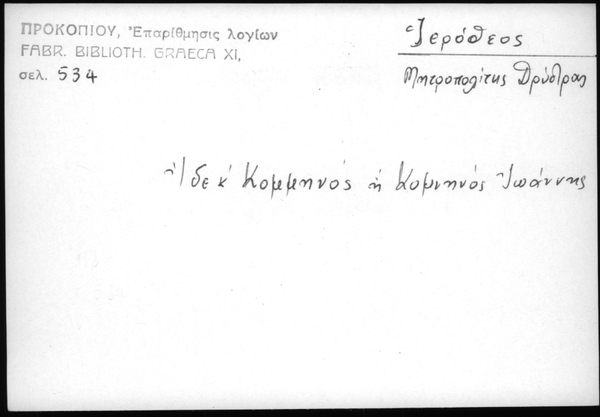 ΠΡΟΚΟΠΙΟΥ, Ἐπαρίθμησις λογίων
FABR. BIBLIOTH. GRAECA XI,
σελ. 534
Ἱερόθεος
Μητροπολίτης Δρύστρας
Ἰδε κ' Κομμηνός ἤ Κομνηνός Ἰωάννης